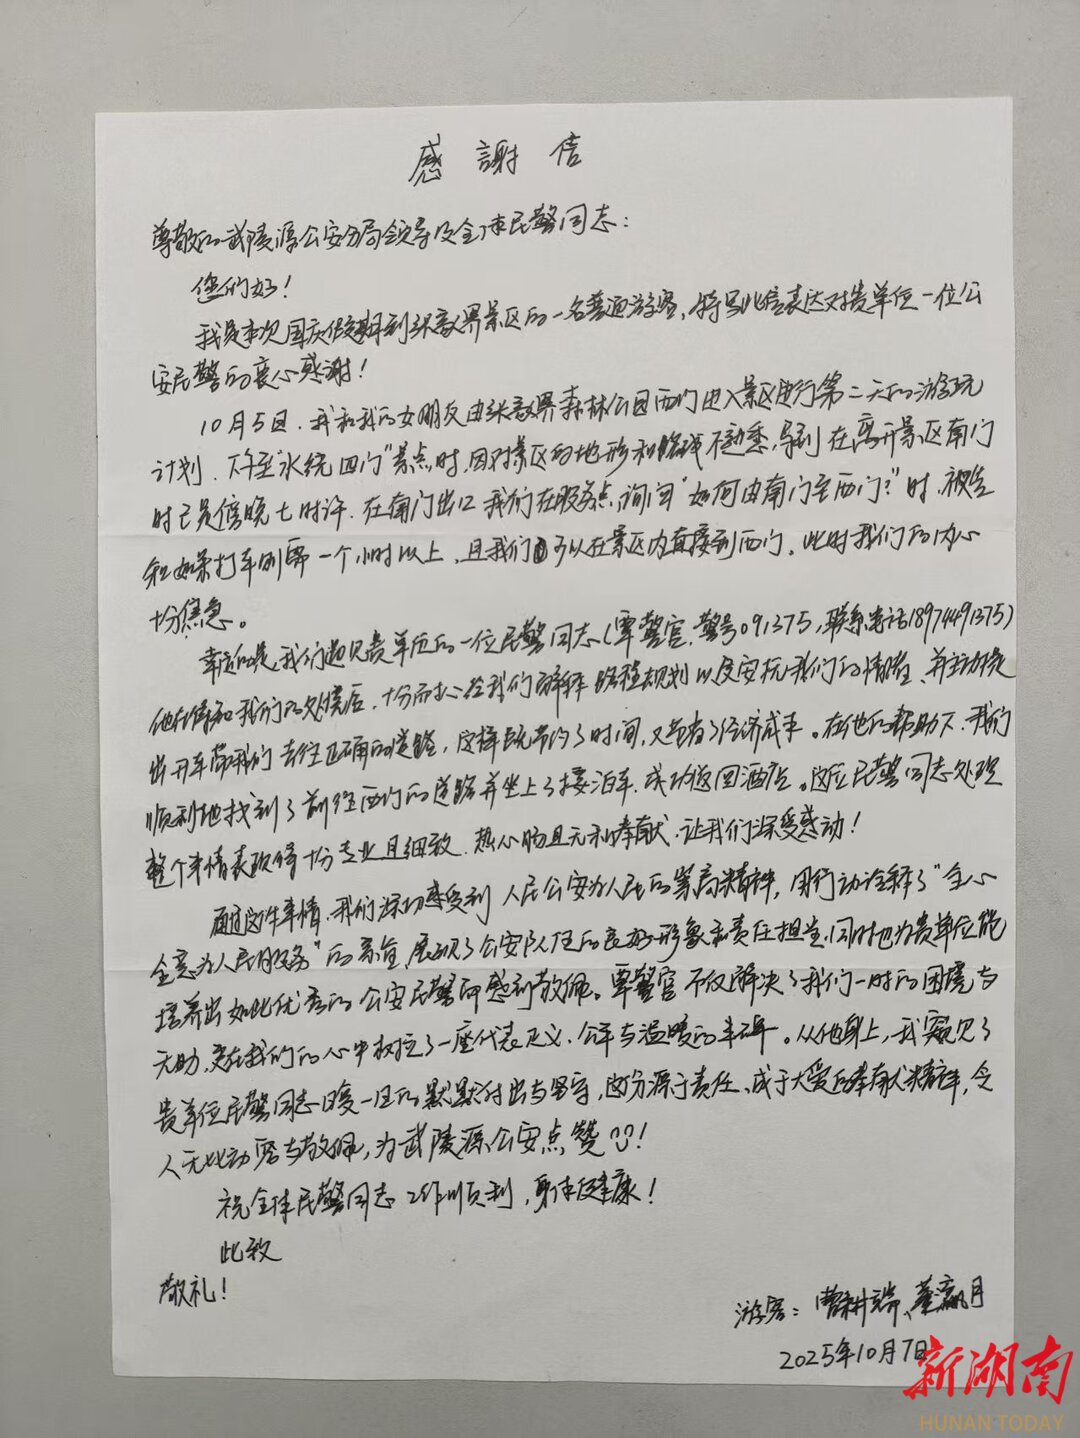 感謝信
尊敬的武陵源公安分局领导及全体民警同志：
您们好！
我是本次国庆假期到张家界景区的一名普通游客，特写此信表达对贵单位一位公
安民警的衷心感谢！
10月5日，我和我的女朋友由张家界森林公园西门进入景区进行第二天的游玩
计划，下午至"水绕四门"景点时，因对景区的地形和路线不熟悉，导到在离开景区南门
时已是傍晚七时许，在南门出口我们在服务点询问"如何由南门至西门？"时，被告
知如果打车则需一个小时以上，且我们可以在景区内直接到西门，此时我们的内心
十分焦急。
幸运的是，我们遇见贵单位的一位民警同志（覃警官，警号091375，联系电话18974491375）
他在得知我们的处境后，十分耐心给我们解释路程规划以及安抚我们的情绪，并主动提
出开车带我们去往正确的道路，这样既节约了时间，又节省了经济成本。在他的帮助下，我们
顺利地找到了前往西门的道路并坐上了接泊车，成功返回酒店。这位民警同志处理
整个事情表现得十分专业且细致，热心肠且无私奉献，让我们深受感动！
通过这件事情，我们深切感受到人民公安为人民的崇高精神，用行动诠释了"全心
全意为人民服务"的宗旨，展现了公安队伍的良好形象和责任担当，同时也为贵单位能
培养出如此优秀的公安民警而感到敬佩。覃警官不仅解决了我们一时的困境与
无助，更在我们的心中树立了一座代表正义、公平与温暖的丰碑。从他身上，我窥见了
贵单位民警同志日复一日的默默付出与坚守，这份源于责任、成于大爱的奉献精神，令
人无比动容与敬佩，为武陵源公安点赞！
祝全体民警同志工作顺利，身体健康！
此致
敬礼！
游客：曹耕端、董瀛月
2025年10月7日
新湖南
HUNAN TODAY